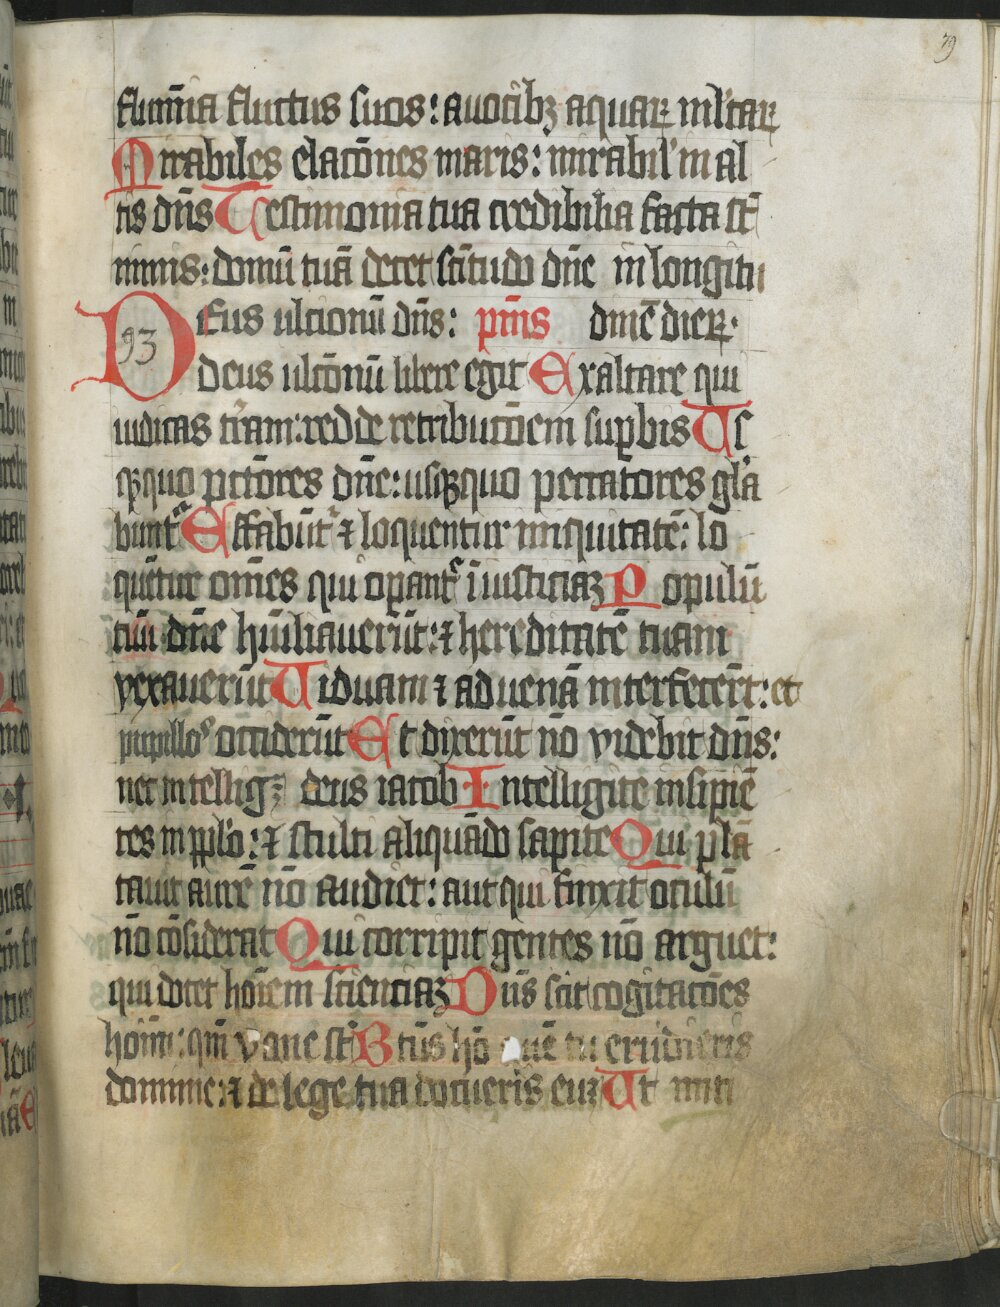 79
flumīa fluctus suos: a vocibꝫ aquaꝝ m̄ltaꝝ
Mirabiles elacōnes maris: mirabil' in al
tis dn̄s Testimonia tua credibilia facta st̄
nimis: domū tuā decet sc̄itudo dn̄e in longitu
Deus ulcionū dn̄s: p̄mis dine dieꝝ.
93
deus ulcōnū libere egit Exaltare qui
iudicas t'ram: redde retribucōem suꝑbis Us
qꝫquo pc̄tōres dn̄e: usqꝫquo peccatores gl'a
bunt' Effabūt' ⁊ loquentur iniquitatē: lo
quētur om̄es qui oꝑant' īiusticiaꝫ Populū
tuū dn̄e hūiliaverūt: ⁊ hereditatē tuam
vexaverūt Viduam ⁊ advenā interfecer̄t: et
pupillos occiderūt Et dixerūt nō videbit dn̄s:
nec intelligꝫ deus iacob Intelligite insipiē
tes in pp̄lo: ⁊ stulti aliquādo sapite Qui plā
tavit aurē nō audiet: aut qui finxit oculū
nō cōsiderat Qui corripit gentes nō arguet:
qui docet hoīem scienciaꝫ Dn̄s scit cogitacōes
hoīm: qm̄ vane st̄ Btūs hō quē tu erudieris
domine: ⁊ de lege tua docueris euꝫ Ut miti